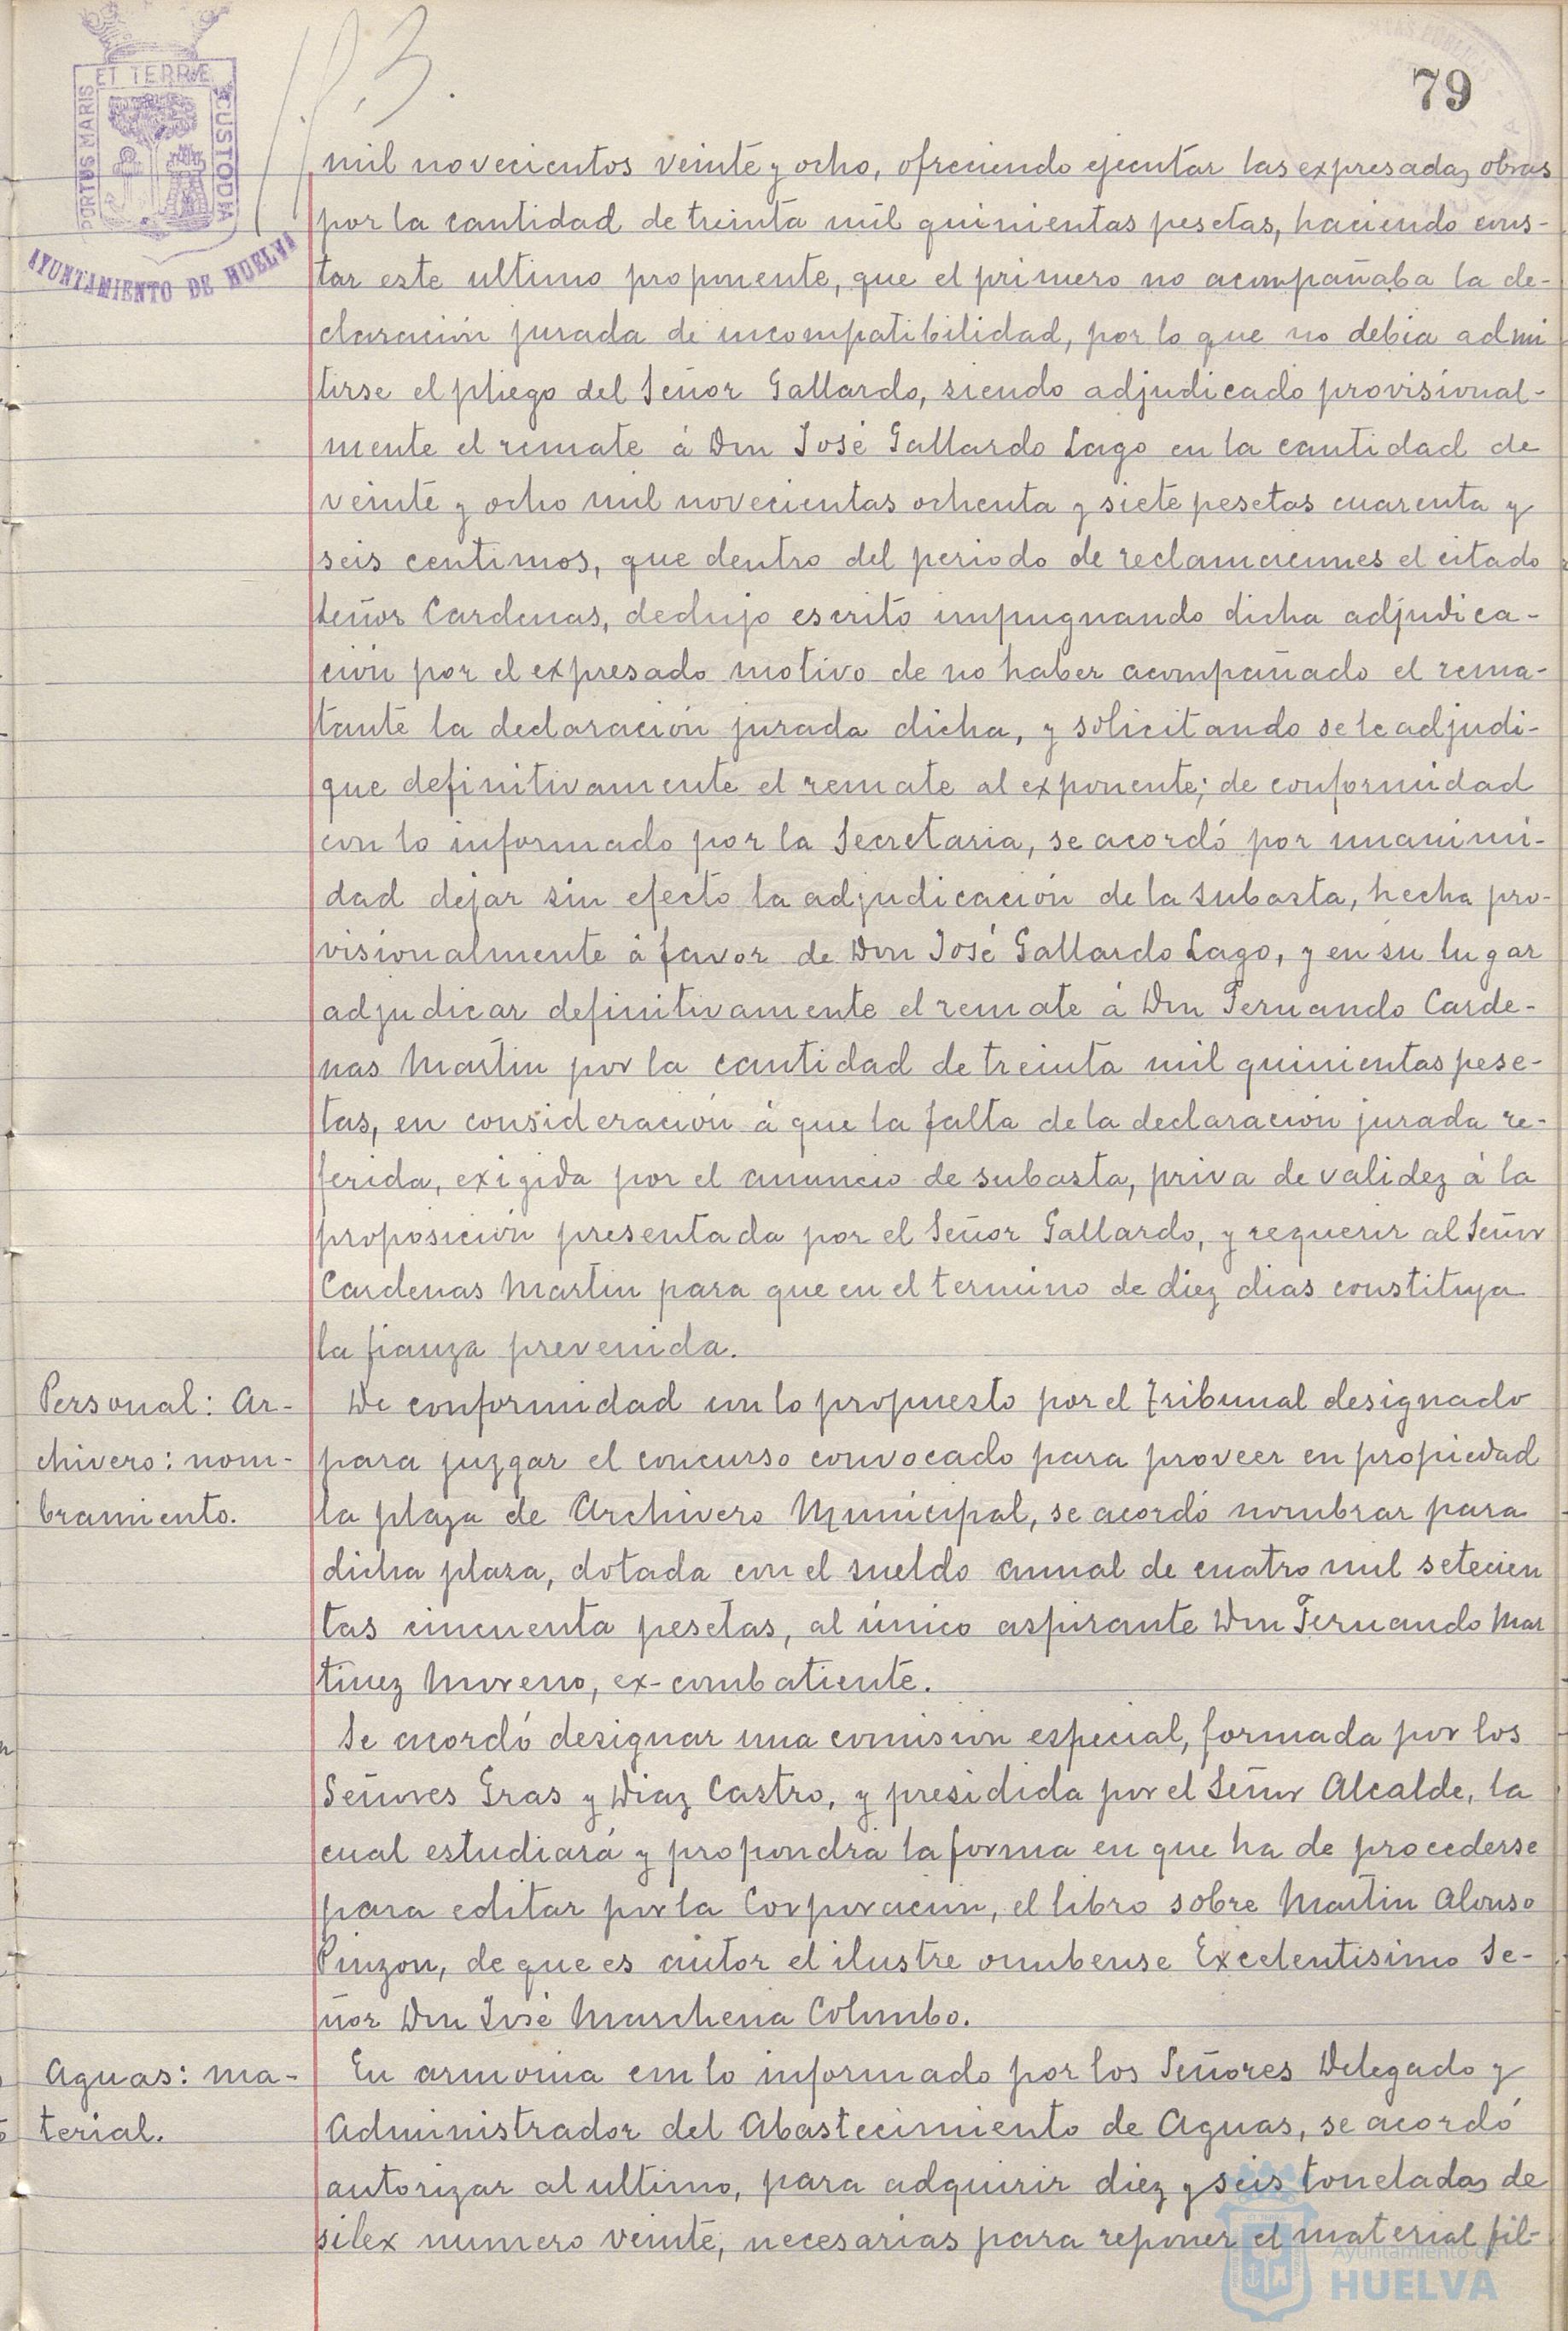 79
PORTUS MARIS ET TERRÆ CUSTODIA
AYUNTAMIENTO DE HUELVA
mil novecientos veinte y ocho, ofreciendo ejecutar las expresadas obras
por la cantidad de treinta mil quinientas pesetas, haciendo cons-
tar este ultimo proponente, que el primero no acompañaba la de-
claración jurada de incompatibilidad, por lo que no debia admi
tirse el pliego del Señor Gallardo, siendo adjudicado provisional-
mente el remate á Don José Gallardo Lago en la cantidad de
veinte y ocho mil novecientas ochenta y siete pesetas cuarenta y
seis centimos, que dentro del periodo de reclamaciones el citado
Señor Cardenas, dedujo escrito impugnando dicha adjudica-
ción por el expresado motivo de no haber acompañado el rema-
tante la declaración jurada dicha, y solicitando se le adjudi-
que definitivamente el remate al exponente; de conformidad
con lo informado por la Secretaria, se acordó por unanimi-
dad dejar sin efecto la adjudicación de la subasta, hecha pro-
visionalmente á favor de Don José Gallardo Lago, y en su lugar
adjudicar definitivamente el remate á Don Fernando Carde-
nas Martin por la cantidad de treinta mil quinientas pese-
tas, en consideración á que la falta de la declaración jurada re-
ferida, exigida por el anuncio de subasta, priva de validez á la
proposición presentada por el Señor Gallardo, y requerir al Señor
Cardenas Martin para que en el termino de diez dias constituya
la fianza prevenida.
Personal: Ar-
chivero: nom-
bramiento.
De conformidad con lo propuesto por el tribunal designado
para juzgar el concurso convocado para proveer en propiedad
la plaza de Archivero Municipal, se acordó nombrar para
dicha plaza, dotada con el sueldo anual de cuatro mil setecien
tas cincuenta pesetas, al único aspirante Don Fernando Mar
tinez Moreno, ex-combatiente.
Se acordó designar una comision especial, formada por los
Señores Gras y Diaz Castro, y presidida por el Señor Alcalde, la
cual estudiará y propondrá la forma en que ha de procederse
para editar por la Corporación, el libro sobre Martin Alonso
Pinzon, de que es autor el ilustre onubense Excelentisimo Se-
ñor Don José Marchena Colombo.
Aguas: ma-
terial.
En armonia con lo informado por los Señores Delegado y
Administrador del Abastecimiento de Aguas, se acordó
autorizar al ultimo, para adquirir diez y seis toneladas de
silex numero veinte, necesarias para reponer el material fil-
Ayuntamiento de
HUELVA